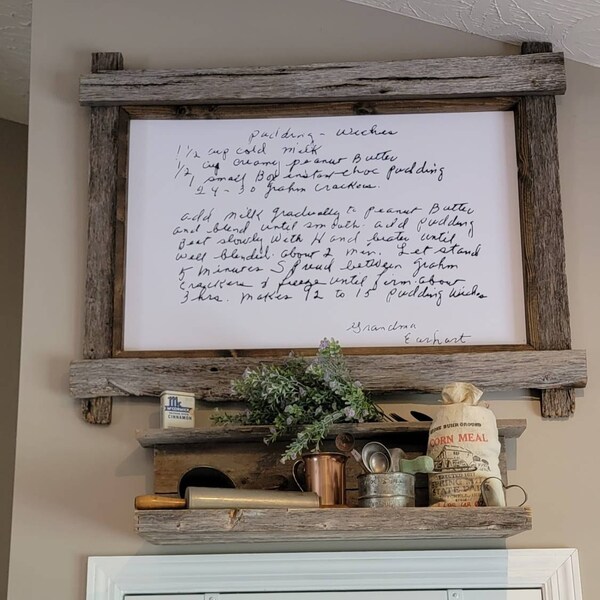 Pudding - Wiches
1 1/2 cup cold milk
1/2 cup creamy peanut Butter
1 small Box instant choc pudding
24-30 grahm crackers.
add milk gradually to peanut Butter
and blend until smooth. add pudding
Beat slowly with Hand beater until
well blended. about 2 min. Let stand
5 minutes Spread between grahm
crackers & freeze until firm. about
3 hrs. makes 12 to 15 pudding wiches
Grandma
Earhart
CINNAMON
STONE BUHR GROUND
CORN MEAL